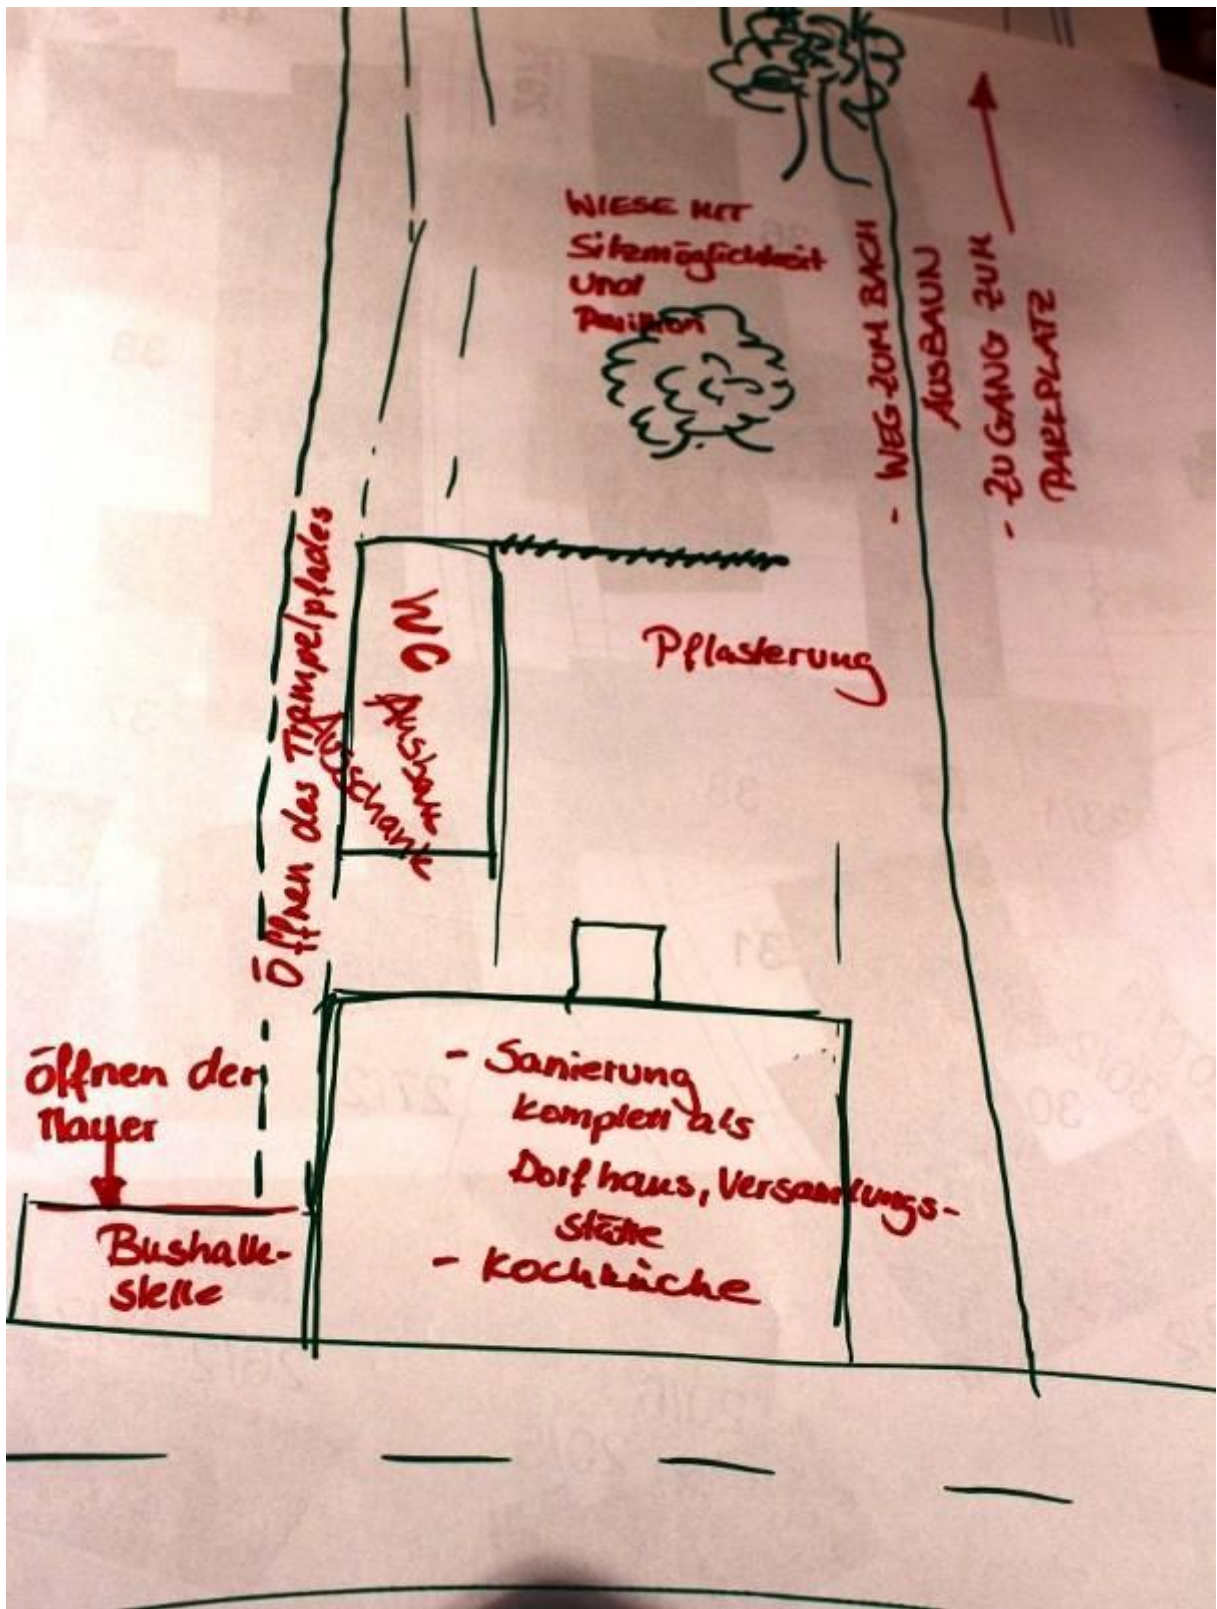 WIESE MIT
Sitzmöglichkeit
und
Pavillon
- WEG ZUM BACH
AUSBAUN
- ZUGANG ZUM
PARKPLATZ
Öffnen des Trampelpfades
WC
Ausschank
Pflasterung
Öffnen der
Mauer
Bushalte-
stelle
- Sanierung
komplett als
Dorfhaus, Versamlungs-
stätte
- Kochküche